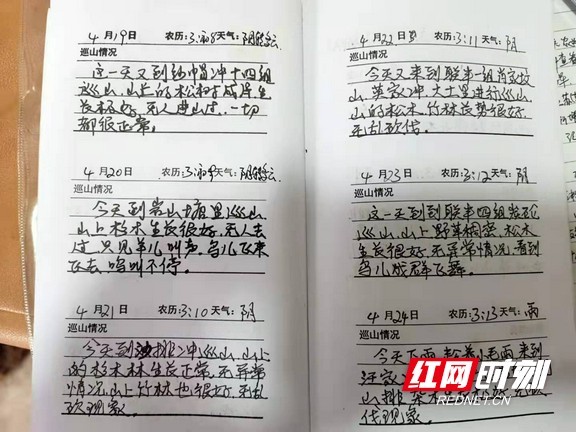 4月19日 农历:3:初8 天气:阴转多云
巡山情况
这一天又到纱帽冲十四组
巡山,山上的松树成片生
长极好,无人进山,一切
都很正常。
4月20日 农历:3:初9 天气:阴转多云
巡山情况
今天到 山塘里巡山
山上松木生长很好,无人去
过,只见羊儿叫声,鸟儿飞来
飞去,鸣叫不停。
4月21日 农历:3:10 天气:阴
巡山情况
今天到 排冲巡山,山上
的杉木林生长正常,无异常
情况,山上竹林也很好,无乱
砍现象。
4月22日 农历:3:11 天气:阴
巡山情况
今天又来到联丰一组肖家坡
山,莫家冲,大土里进行巡山,
山的松木,竹林长势很好,
无乱砍伐。
4月23日 农历:3:12 天气:阴
巡山情况
这一天到到联丰四组 
巡山,山上野草稠密,松木
生长很好,无异常情况,看到
鸟儿成群飞舞。
4月24日 农历:3:13 天气:雨
巡山情况
今天下雨,趁着小毛雨来到
汪家
山排
伐现象。
红网时刻
REDNET.CN